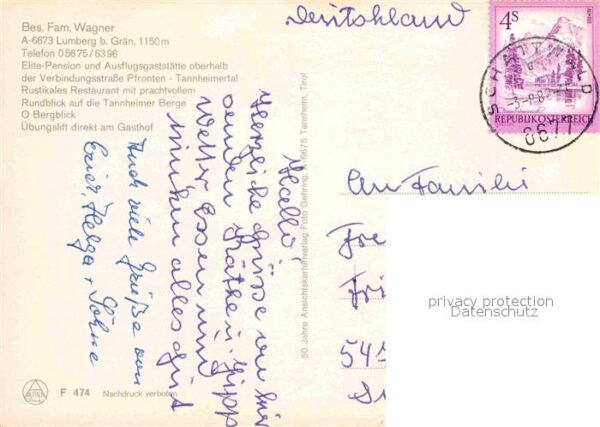 Bes. Fam. Wagner
A-6673 Lumberg b. Grän, 1150 m
Telefon 0 56 75 / 63 96
Elite-Pension und Ausflugsgaststätte oberhalb
der Verbindungsstraße Pfronten - Tannheimertal
Rustikales Restaurant mit prachtvollem
Rundblick auf die Tannheimer Berge
O Bergblick
Übungslift direkt am Gasthof
Deutschland
4S
REPUBLIK ÖSTERREICH
SCHATTWALD
6677
Hallo!
Herzliche Grüsse von hier
senden Käthe u.
Wetter Essen und
trinken alles gut
Auch viele Grüße von
Helga + Söhne
50 Jahre Ansichtskartenverlag Foto Gehring, A-6675 Tannheim, Tirol
An Familie
Fre
Fri
545
privacy protection
Datenschutz
F 474 Nachdruck verboten